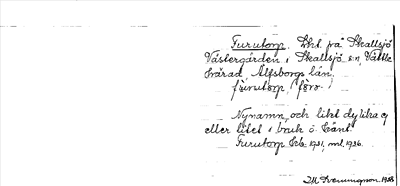 Furutorp. Lht. på Skallsjö
Västergården i Skallsjö sn, Vättle
härad, Älfsborgs län.
furutorp, förr.
Nynamn, och likt dylika ej
eller litet i bruk ö. känt.
Furutorp Erb. 1931, ml. 1936.
IM Svenningson 1938